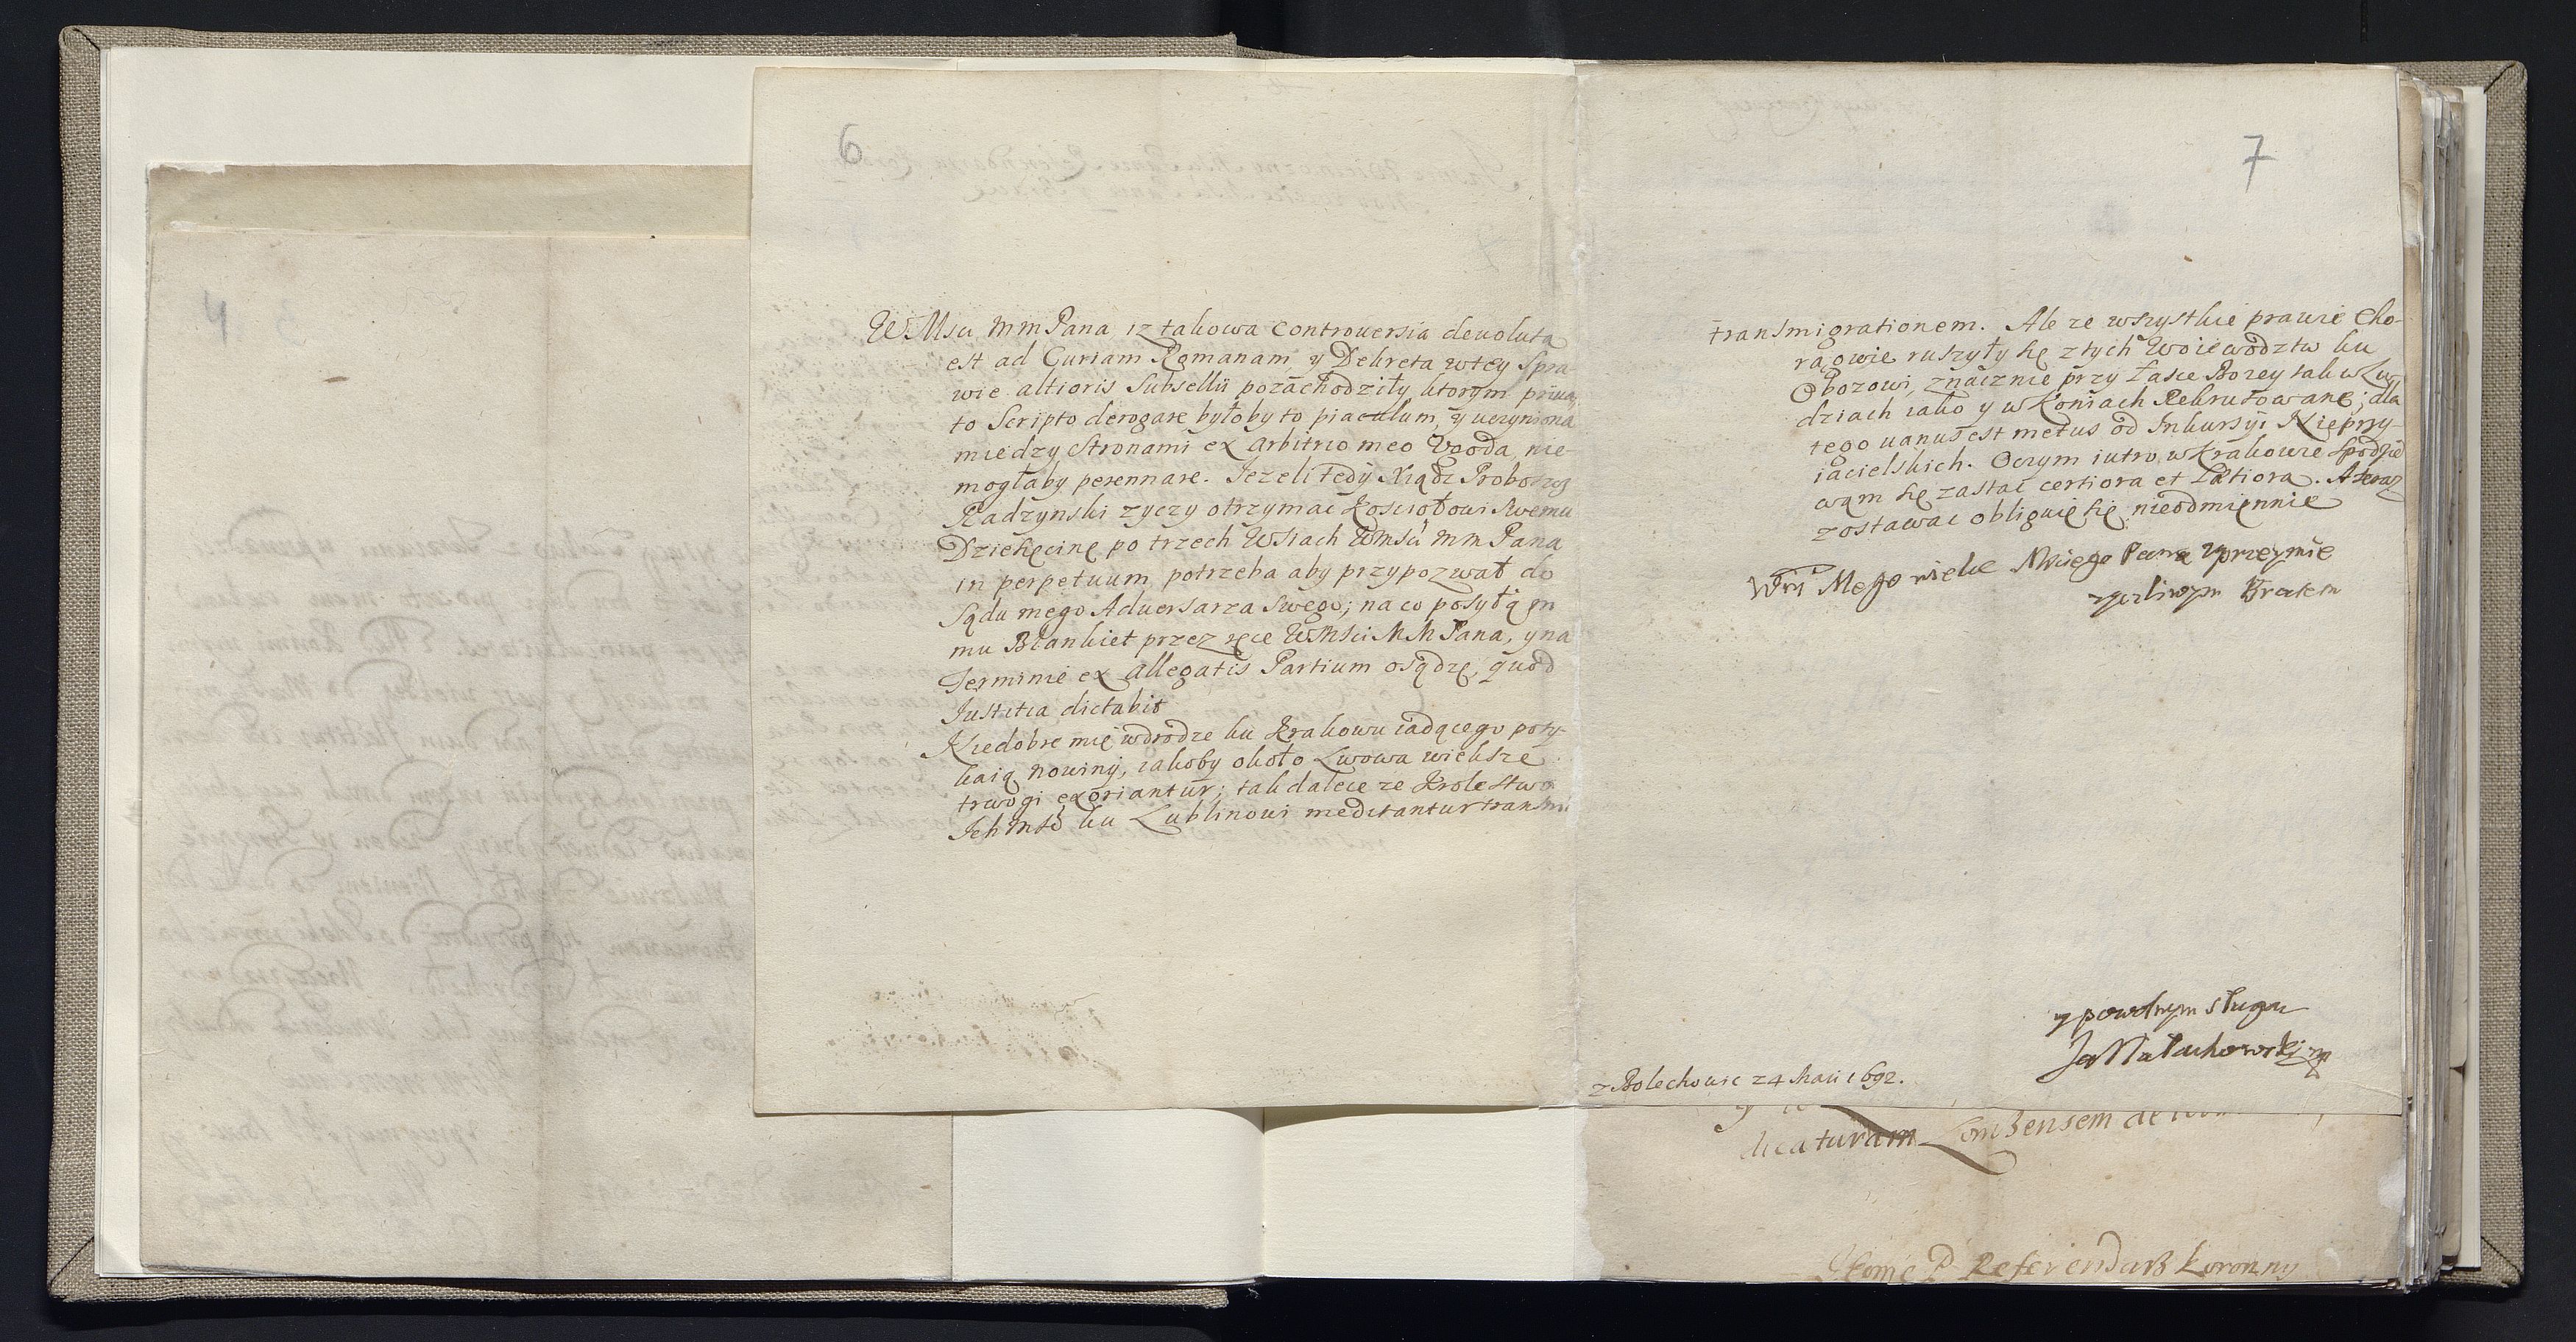 6
WMsci mm Pana iz takowa Controuersia deuoluta
est ad Curiam Romanam, y Dekreta wtey Spra-
wie altioris Subsellii pozachodziły, ktorym priua-
to Scripto derogare byłoby to piaculum, y uczyniona
miedzy Stronami ex arbitrio meo Vgoda, nie-
mogłaby perennare. Jezeli tedy Xiądz Proboszcz
Radzynski zyczy otrzymac Kosciołowi Swemu
Dziesięcinę po trzech Wsiach Wmści mm Pana
in perpetuum, potrzeba aby przypozwał do
Sądu mego Aduersarza Swego; na co posyłą m
mu Blankiet przez ręce WMści MM Pana, y na
Terminie ex allegatis Partium osądzę, quod
Justitia dictabit
Niedobre mię wdrodze ku Krakowu iadącego poty-
kaią nowiny, iakoby około Lwowa wieksze
trwogi exoriantur; tak dalece ze Krolestwo
Ich Mść ku Lublinowi meditantur transmi
7
transmigrationem. Ale ze wszystkie prawie Cho-
rągwie ruszyły się z tych Woiewodztw ku
Obozowi, znacznie przy Łasce Bozey tak w Lu-
dziach iako y w Koniach Rekrutowane; dla
tego uanus est metus od Inkursyi Nieprzy-
iacielskich. Oczym iutro w Krakowie Spodzie
wam się zastac certiora et Latiora. A teraz
zostawac obliguię się nieodmiennie
Wm Mego wielce Mściego Pana uprzeymie
zyczliwym Bratem
y powolnym sługą
Ja Małachowski
z Bolechowic 24 Maii 1692.
dicaturam Lomzensem
P Referendarz Koronny
4